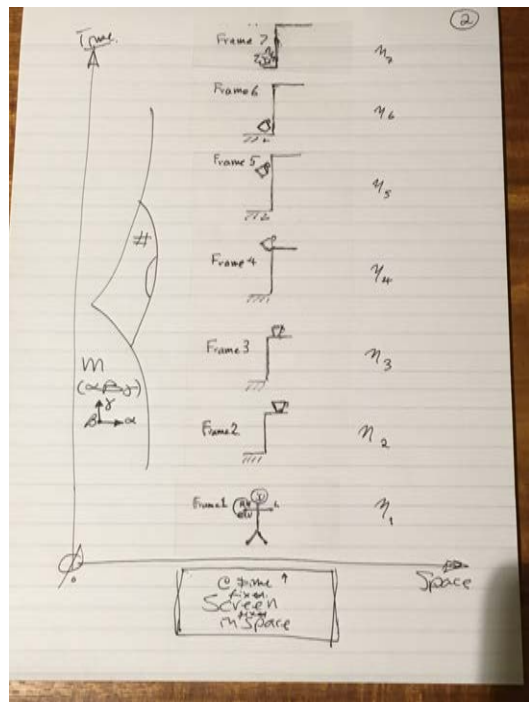 2
Time.
Frame 7
η7
Frame 6
η6
Frame 5
η5
Frame 4
η4
#
Frame 3
η3
m
(α β γ)
γ
β α
Frame 2
η2
Frame 1 L
η1
Space
@ time
fixed
Screen
fixed
in Space